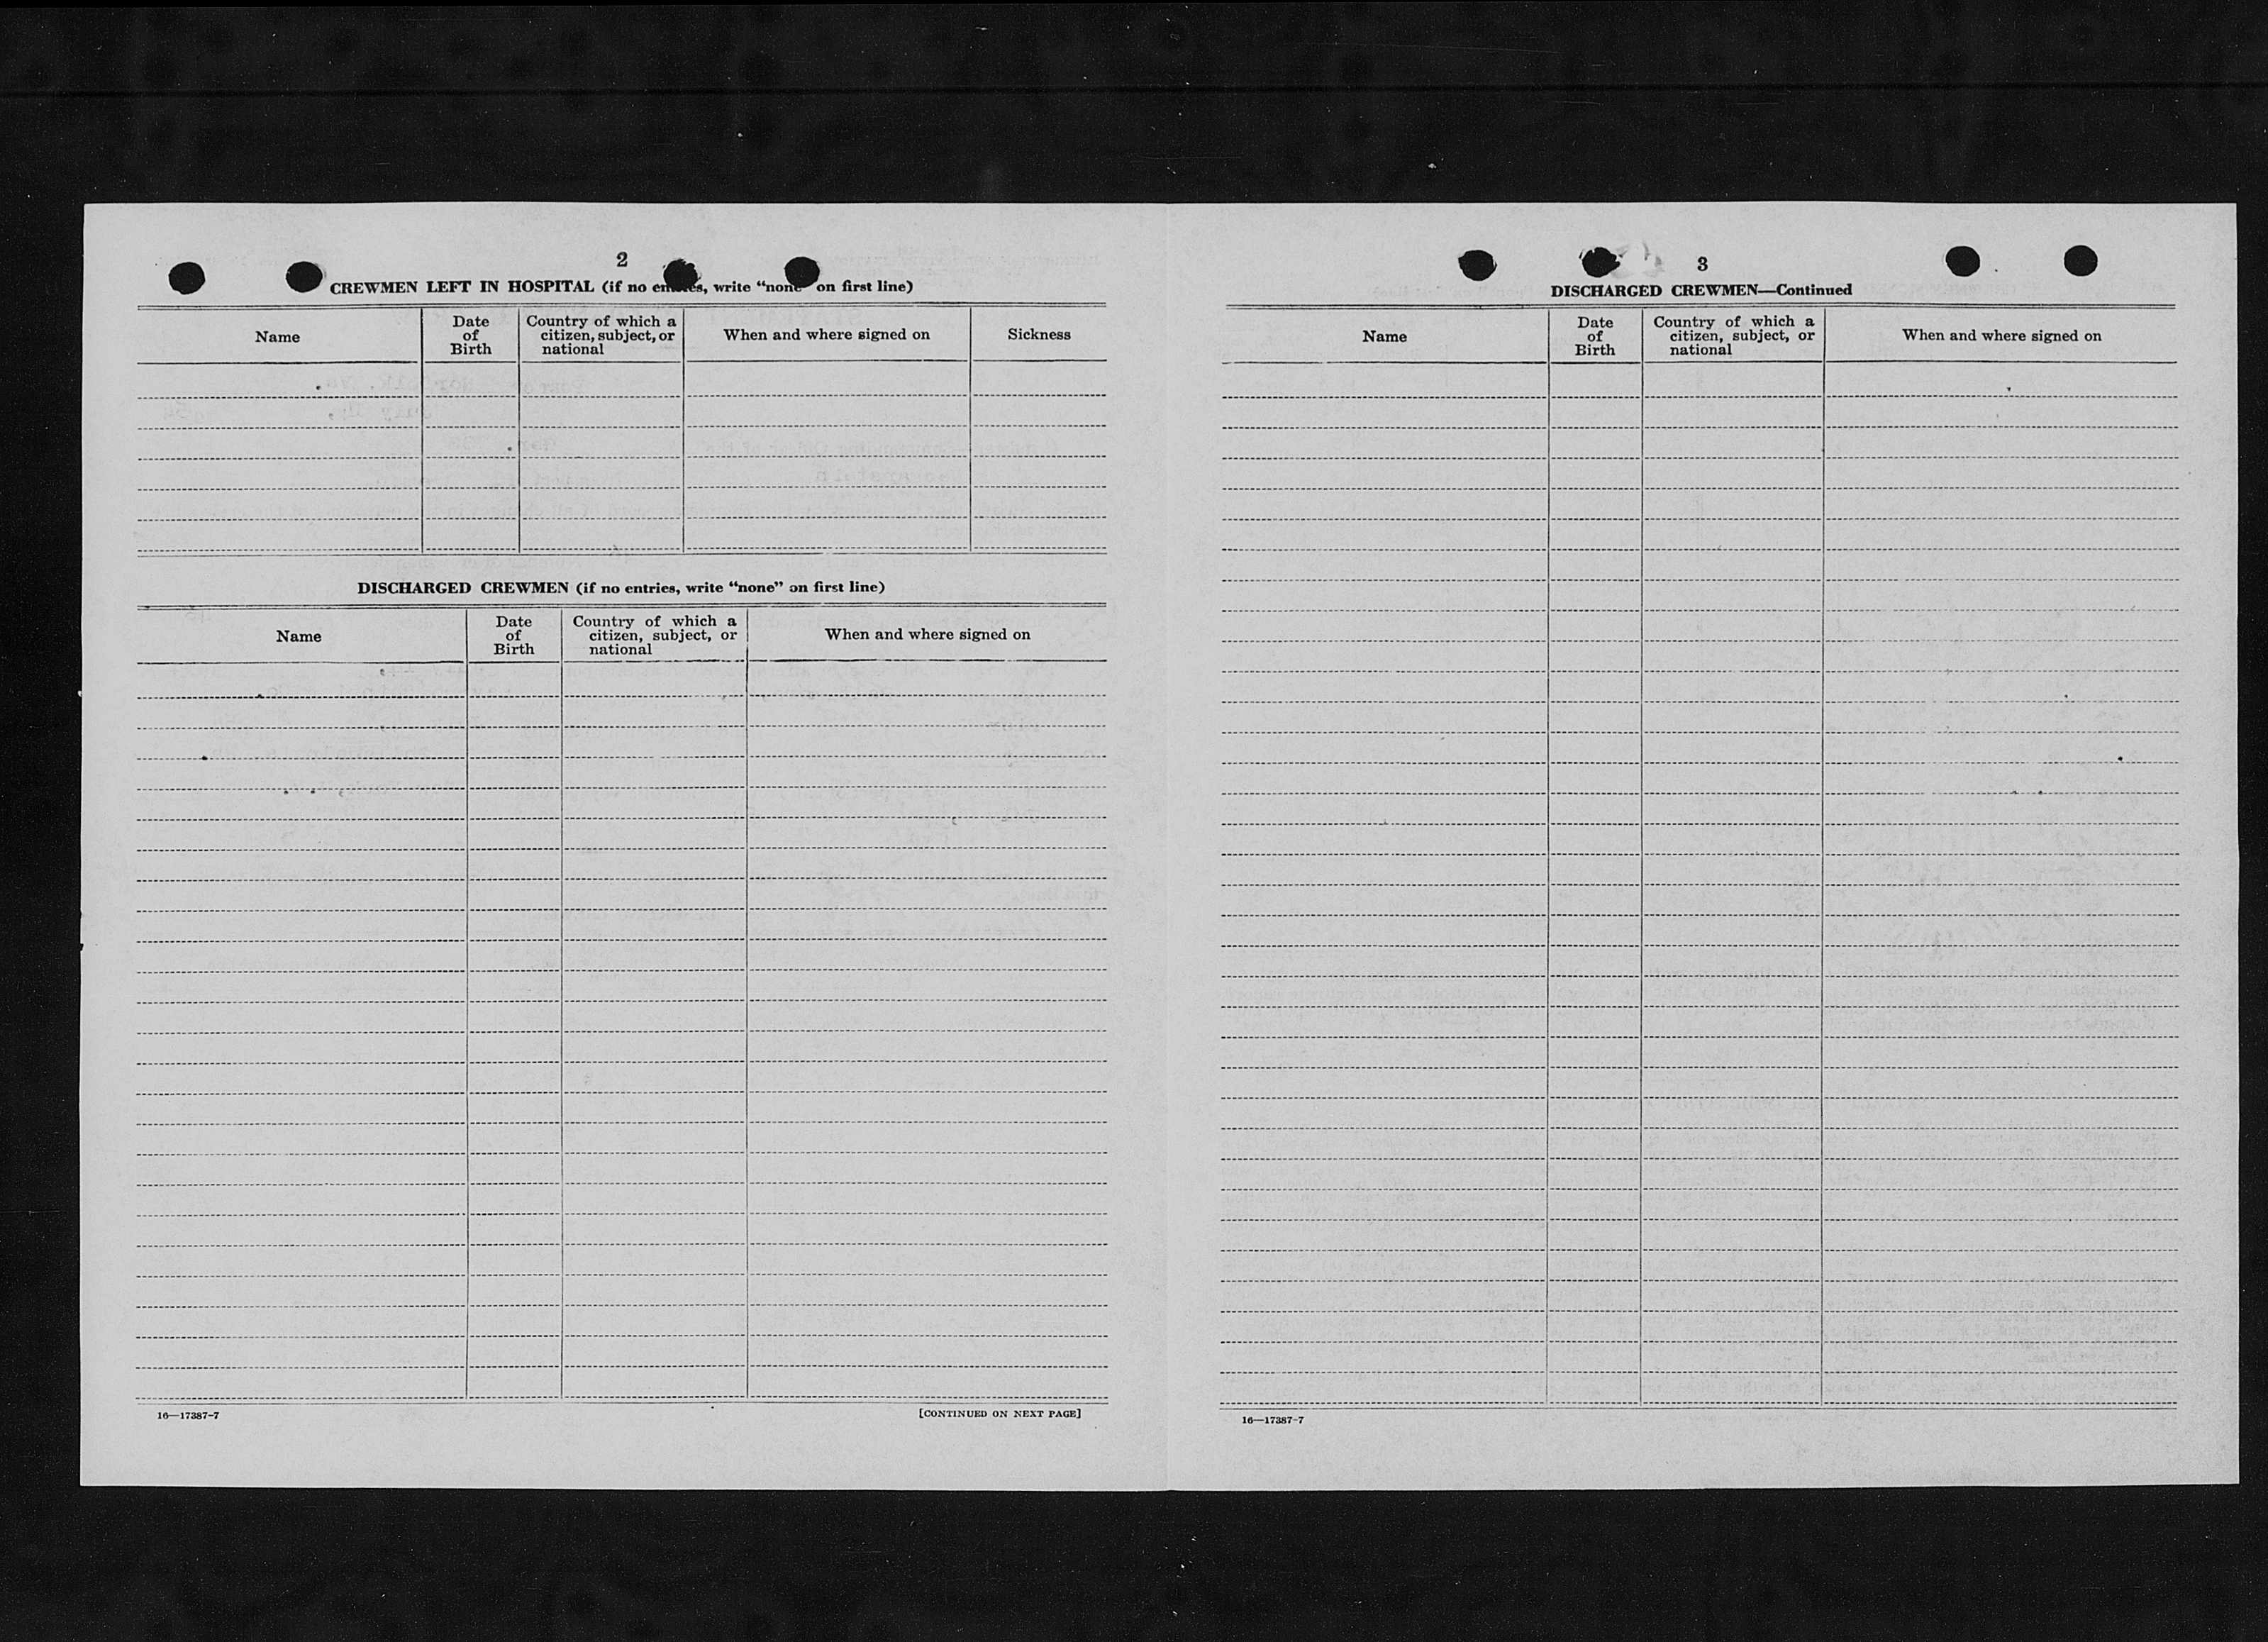 2
CREWMEN LEFT IN HOSPITAL (if no entries, write "none" on first line)
Name
Date of Birth
Country of which a citizen, subject, or national
When and where signed on
Sickness
DISCHARGED CREWMEN (if no entries, write "none" on first line)
Name
Date of Birth
Country of which a citizen, subject, or national
When and where signed on
16—17387-7
[CONTINUED ON NEXT PAGE]
3
DISCHARGED CREWMEN—Continued
Name
Date of Birth
Country of which a citizen, subject, or national
When and where signed on
16—17387-7